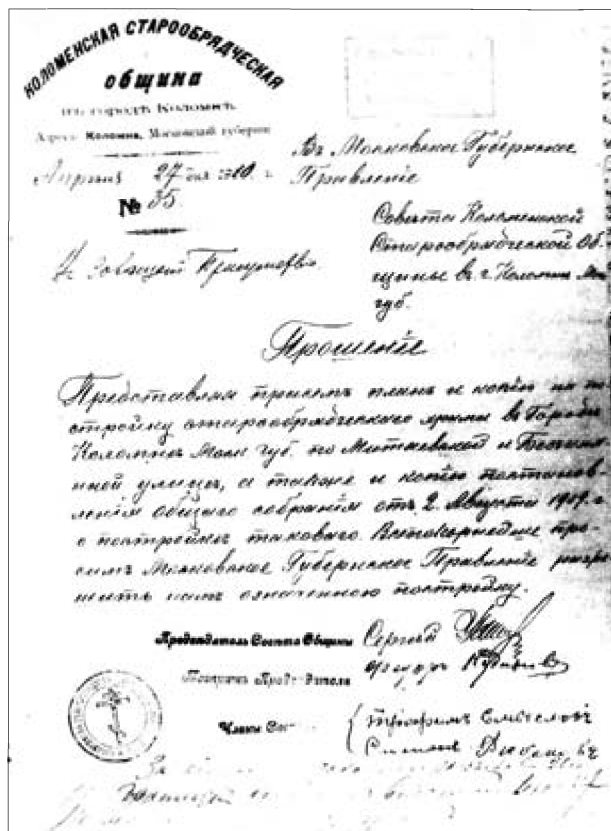 КОЛОМЕНСКАЯ СТАРООБРЯДЧЕСКАЯ
община
въ городѣ Коломнѣ.
Адресъ: Коломна, Московской губерніи
Апрѣля 27 дня 1910 г.
№ 35.
Въ Московское Губернское
Правленіе
Совѣта Коломенской
Старообрядческой Об-
щины въ г. Коломнѣ Мос
губ.
Прошеніе
Представляя присемъ планъ и копію на по
стройку старообрядческаго храма въ Городѣ
Коломнѣ Моск губ. по Митяевской и
ной улицъ, а также и копію постанов-
ленія общаго собранія отъ 2 Августа 1909 г
о постройкѣ таковаго. Всепокорнейше про-
симъ Московское Губернское Правленіе разрѣ
шить намъ означенную постройку.
Предсѣдатель Совѣта Общины Сергѣй
Товарищъ Предсѣдателя Федоръ
Члены Сов
Трофимъ Смысловъ